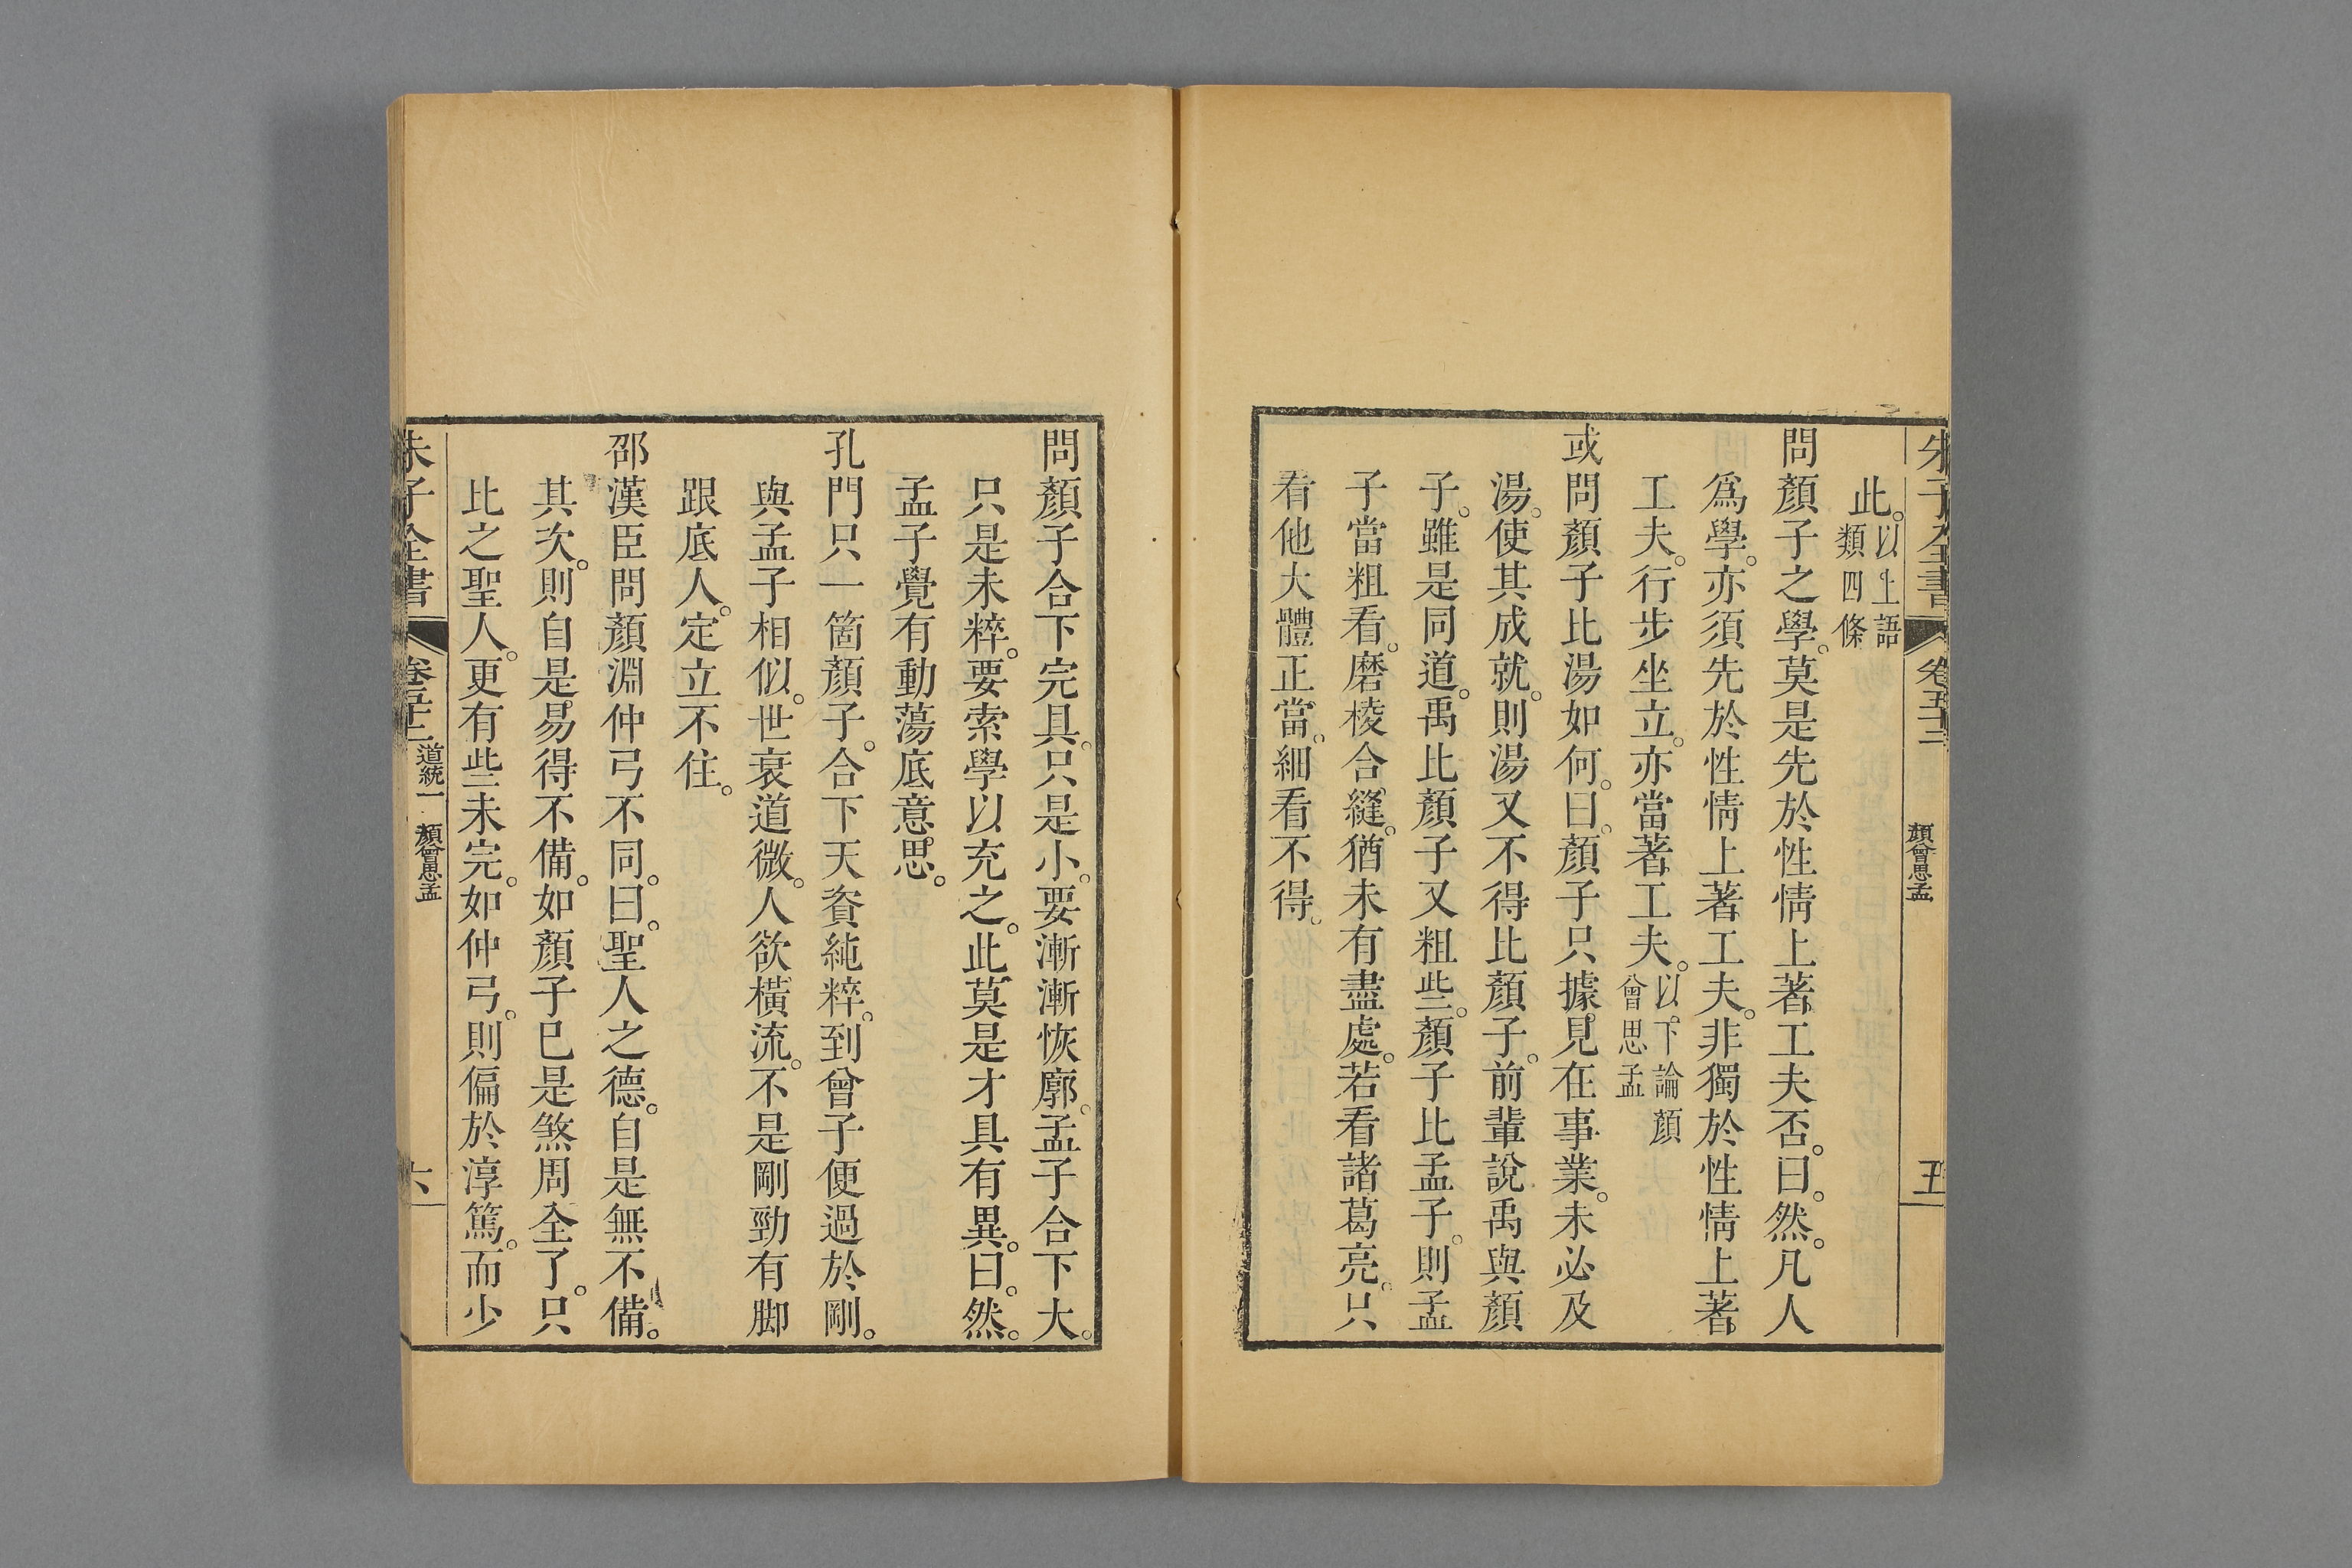 朱子全書 卷五十二 顏曾思孟 五
此。以上語類四條
問顏子之學。莫是先於性情上著工夫否。曰。然。凡人
爲學。亦須先於性情上著工夫。非獨於性情上著
工夫。行步坐立。亦當著工夫。以下論顏曾思孟
或問顏子比湯如何。曰。顏子只據見在事業。未必及
湯。使其成就。則湯又不得比顏子。前輩說禹與顏
子。雖是同道。禹比顏子又粗些。顏子比孟子。則孟
子當粗看。磨棱合縫。猶未有盡處。若看諸葛亮。只
看他大體正當。細看不得。
問顏子合下完具。只是小。要漸漸恢廓。孟子合下大。
只是未粹。要索學以充之。此莫是才具有異。曰。然。
孟子覺有動蕩底意思。
孔門只一箇顏子。合下天資純粹。到曾子便過於剛。
與孟子相似。世衰道微。人欲橫流。不是剛勁有脚
跟底人。定立不住。
邵漢臣問顏淵仲弓不同。曰。聖人之德。自是無不備。
其次。則自是易得不備。如顏子已是煞周全了。只
比之聖人。更有些未完。如仲弓。則偏於淳篤。而少
朱子全書 卷五十二 道統一 顏曾思孟 六